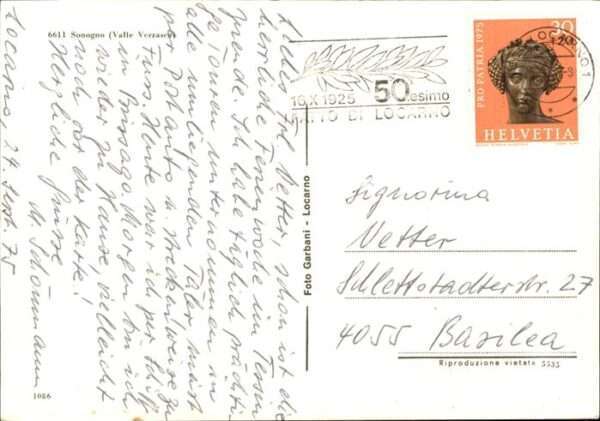 6611 Sonogno (Valle Verzasca)
Locarno, 24. Sept. 75
Liebes Frl. Vetter, schon ist die
herrliche Ferienwoche im Tessin
zu Ende. Ich habe täglich prächti-
ge Touren unternommen in
alle umliegenden Täler meist
per Postauto u. streckenweise zu
Fuss. Heute war ich per Schiff
in Brissago. Morgen bin ich
wieder zu Hause, vielleicht
noch vor der Karte!
Herzliche Grüsse
M. Schönmann
1086
Foto Garbani - Locarno
16.X.1925 50.esimo
PATTO DI LOCARNO
LOCARNO 1
PRO PATRIA 1975
30
HELVETIA
Signorina
Vetter
Schlettstadterstr. 27
4055 Basilea
Riproduzione vietata 5535